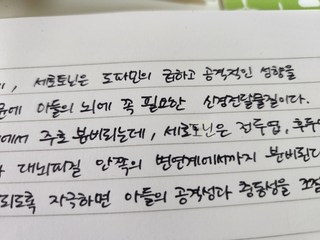 , 세로토닌은 도파민의 급하고 공격적인 성향을
문에 아들의 뇌에 꼭 필요한 신경전달물질이다.
에서 주로 분비되는데, 세로토닌은 전두엽, 후두
대뇌피질 안쪽의 변연계에서까지 분비된다
되도록 자극하면 아들의 공격성과 충동성을 조절